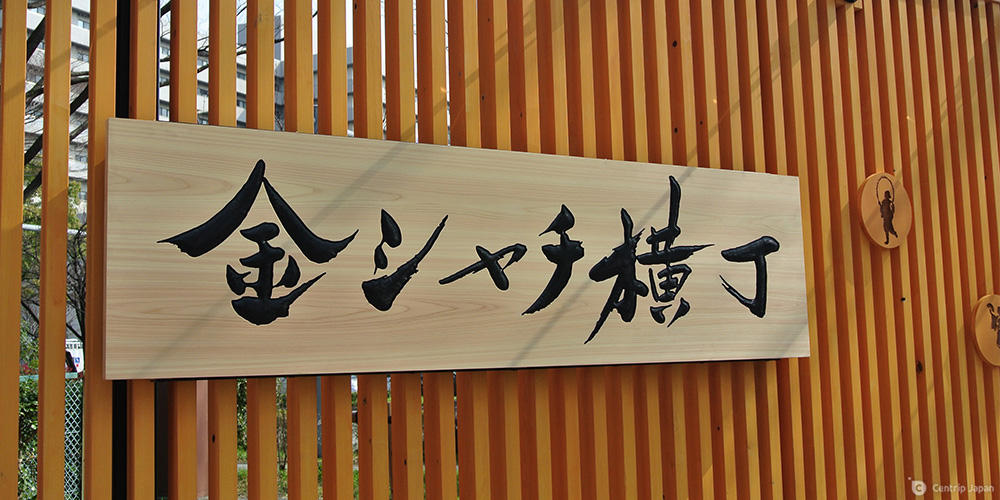 金シャチ横丁
Centrip Japan